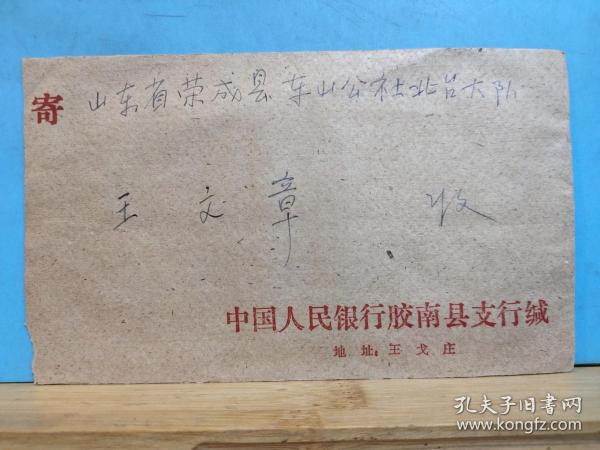 寄 山东省荣成县东山公社北台大队
王文章 收
中国人民银行胶南县支行缄
地址:王戈庄
孔夫子旧书网
www.kongfz.com